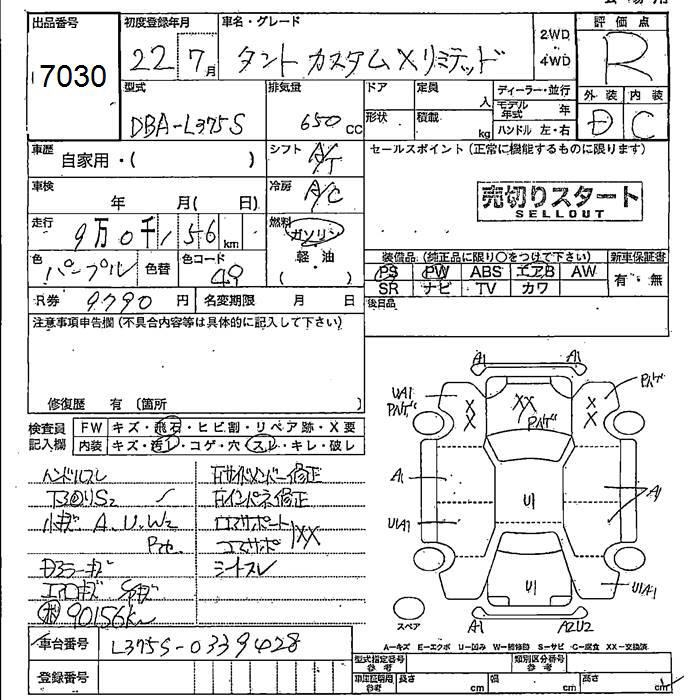 出品番号
7030
初度登録年月
22 7月
車名・グレード
タント カスタム Xリミテッド
2WD
4WD
評価点
R
型式
DBA-L375S
排気量
650 cc
ドア
形状
定員
人
積載
kg
ディーラー・並行
モデル年式 年
ハンドル 左・右
外装
D
内装
C
車歴
自家用・( )
シフト
A/T
セールスポイント(正常に機能するものに限ります)
車検
年 月( 日)
冷房
A/C
売切りスタート
SELLOUT
走行
9万0千156km
燃料
ガソリン
軽・油
( )
色
パープル
色替
色コード
49
装備品(純正品に限り○をつけて下さい)
新車保証書
PS PW ABS エアB AW
SR ナビ TV カワ
有・無
R券
9790円
名変期限 月 日
後日品
注意事項申告欄(不具合内容等は具体的に記入して下さい)
修復歴 有(箇所 )
検査員記入欄
FW キズ・飛石・ヒビ割・リペア跡・X要
内装 キズ・汚レ・コゲ・穴・スレ・キレ・破レ
ハンドルスレ
下回りS2
小キズ A、U、W2
エアロキズ
90156km
右インパネ修正
コアサポートXX
シートスレ
A1
A1
UA1
Pハゲ
XX
Pハゲ
XX
XX
Pハゲ
A1
A1
U1
U1A1
U1
U1A1
スペア
A1
A2U2
A=キズ E=エクボ U=凹み W=補修跡 S=サビ C=腐食 XX=交換済
車台番号
L375S-0339428
登録番号
型式指定番号
参考
類別区分番号
参考
車庫証明用
参考
長さ cm
幅 cm
高さ cm